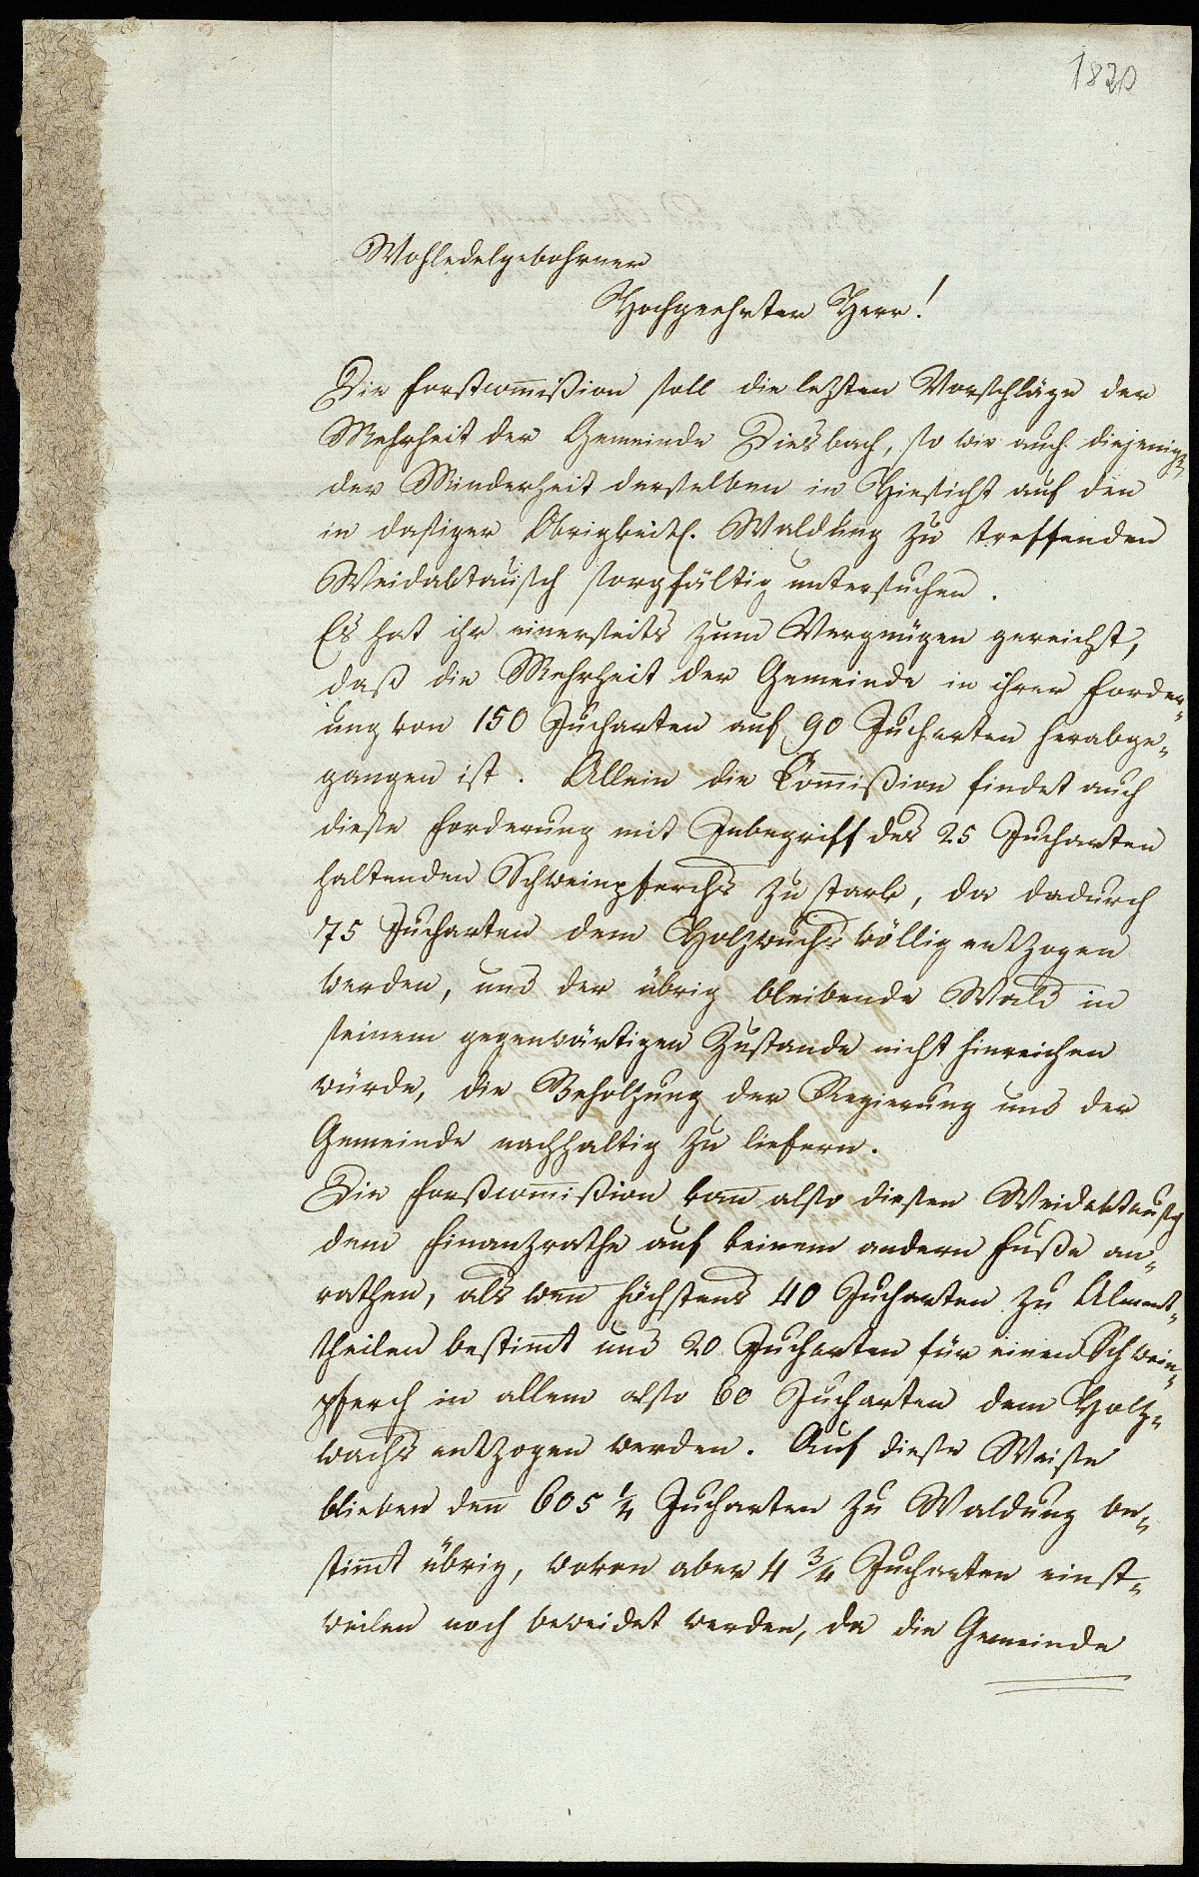 1820
Wohledelgebohrner
Hochgeehrter Herr!
Die Forstcom̅ißion soll die lezten Vorschläge der
Mehrheit der Gemeinde Diesbach, so wie auch diejenig¬
der Minderheit derselben in Hinsicht auf den
in dasiger Obrigkeitl. Waldung zu treffenden
Weidabtausch sorgfältig untersuchen.
Es hat ihr einerseits zum Vergnügen gereicht,
daß die Mehrheit der Gemeinde in ihrer Forder¬
ung von 150 Jucharten auf 90 Jucharten herabge¬
gangen ist. Allein die Com̅ißion findet auch
diese Forderung mit Inbegriff des 25 Jucharten
haltenden Schweinpferchs zu stark, da dadurch
75 Jucharten dem Holzwuchs völlig entzogen
werden, und der übrig bleibende Wald in
seinem gegenwärtigen Zustande nicht hinreichen
würde, die Beholzung der Regierung und der
Gemeinde nachhaltig zu liefern.
Die Forstcom̅ißion kan̅ also diesen Weidabtausch
dem Finanzrathe auf keinem andern Fuße an¬
rathen, als wen̅ höchstens 40 Jucharten zu Alment¬
theilen bestim̅t und 20 Jucharten für einen Schwein¬
pferch in allem also 60 Jucharten dem Holz¬
wachs entzogen werden. Auf diese Weise
blieben den̅ 605 1/4 Jucharten zu Waldung be¬
stim̅t übrig, wovon aber 4 3/4 Jucharten einst¬
weilen noch beweidet werden, da die Gemeinde